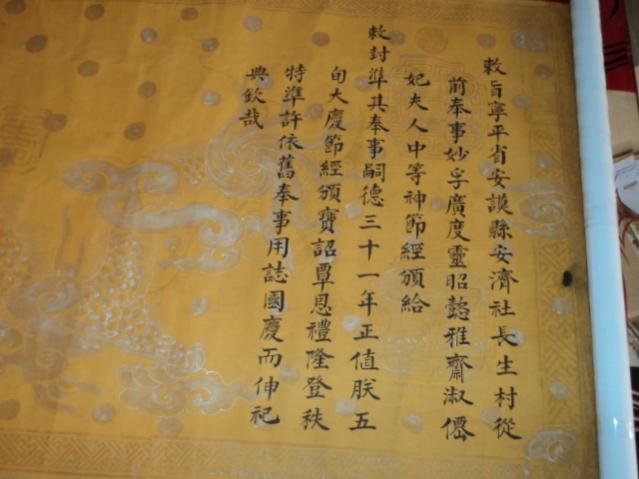 敕旨寧平省安謨縣安濟社長生村從
前奉事妙孚廣度靈昭懿雅齋淑僊
妃夫人中等神節經頒給
敕封準其奉事嗣德三十一年正值朕五
旬大慶節經頒寶詔覃恩禮隆登秩
特準許依舊奉事用誌國慶而伸祀
典欽哉